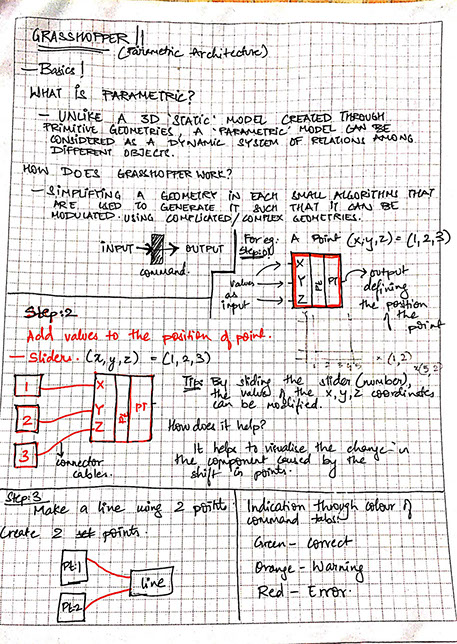 GRASSHOPPER ||
(Parametric Architecture)
- Basics!
WHAT IS PARAMETRIC?
- UNLIKE A 3D 'STATIC' MODEL CREATED THROUGH
PRIMITIVE GEOMETRIES, A 'PARAMETRIC' MODEL CAN BE
CONSIDERED AS A DYNAMIC SYSTEM OF RELATIONS AMONG
DIFFERENT OBJECTS.
HOW DOES GRASSHOPPER WORK?
- SIMPLIFYING A GEOMETRY IN EACH SMALL ALGORITHMS THAT
ARE USED TO GENERATE IT SUCH THAT IT CAN BE
MODULATED USING COMPLICATED/COMPLEX GEOMETRIES.
INPUT → OUTPUT
command.
For eg: A Point (x,y,z) = (1,2,3)
Step:01
values
as
input
X
Y
Z
Pt
PT
output
defining
the position
of the
point
1 2 3 4 5
x (1,2)
Step:2
Add values to the position of point.
- Sliders. (x,y,z) = (1,2,3)
1
2
3
X
Y
Z
Pt
PT
connector
cables.
Tip: By sliding the slider (number),
the value of the x,y,z coordinates
can be modified.
How does it help?
It helps to visualise the change in
the component caused by the
shift in points.
Step:3
Make a line using 2 points.
Create 2 points.
Pt:1
Pt:2
line
Indication through colour of
command tabs:
Green - Correct
Orange - Warning
Red - Error.